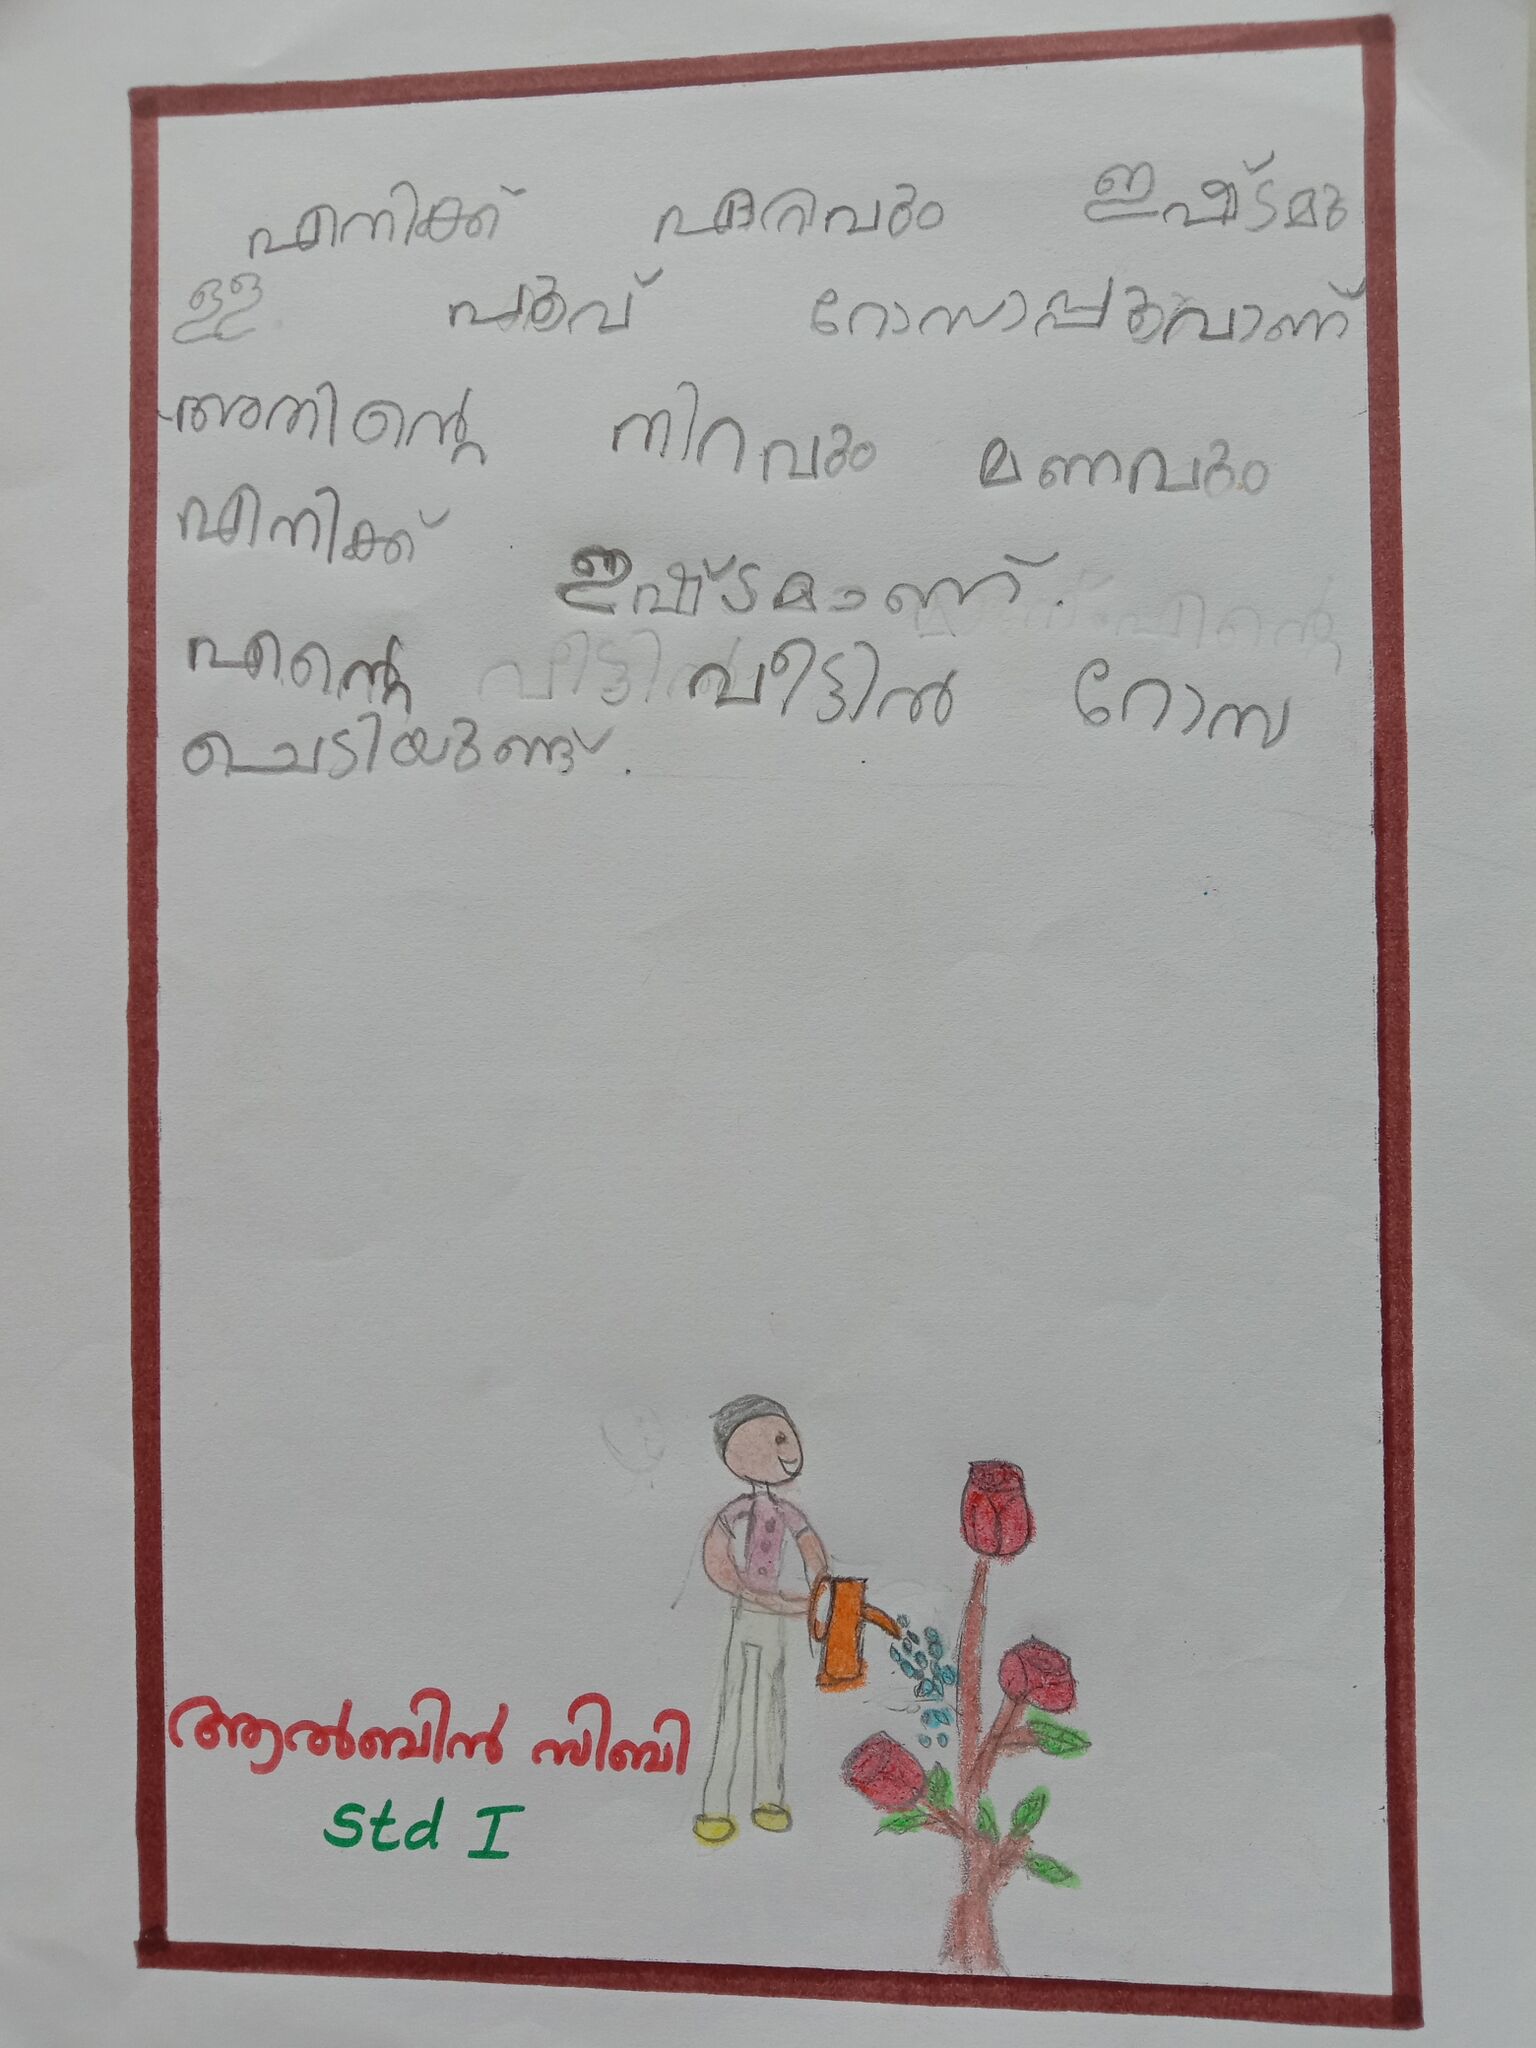 എനിക്ക് ഏറവും ഇഷ്ടമു
ള്ള പൂവ് റോസാപ്പൂവാണ്
അതിന്റെ നിറവും മണവും
എനിക്ക് ഇഷ്ടമാണ്.
എന്റെ വീട്ടിൽ റോസ
ചെടിയുണ്ട്.
ആൽബിൻ സിബി
Std I